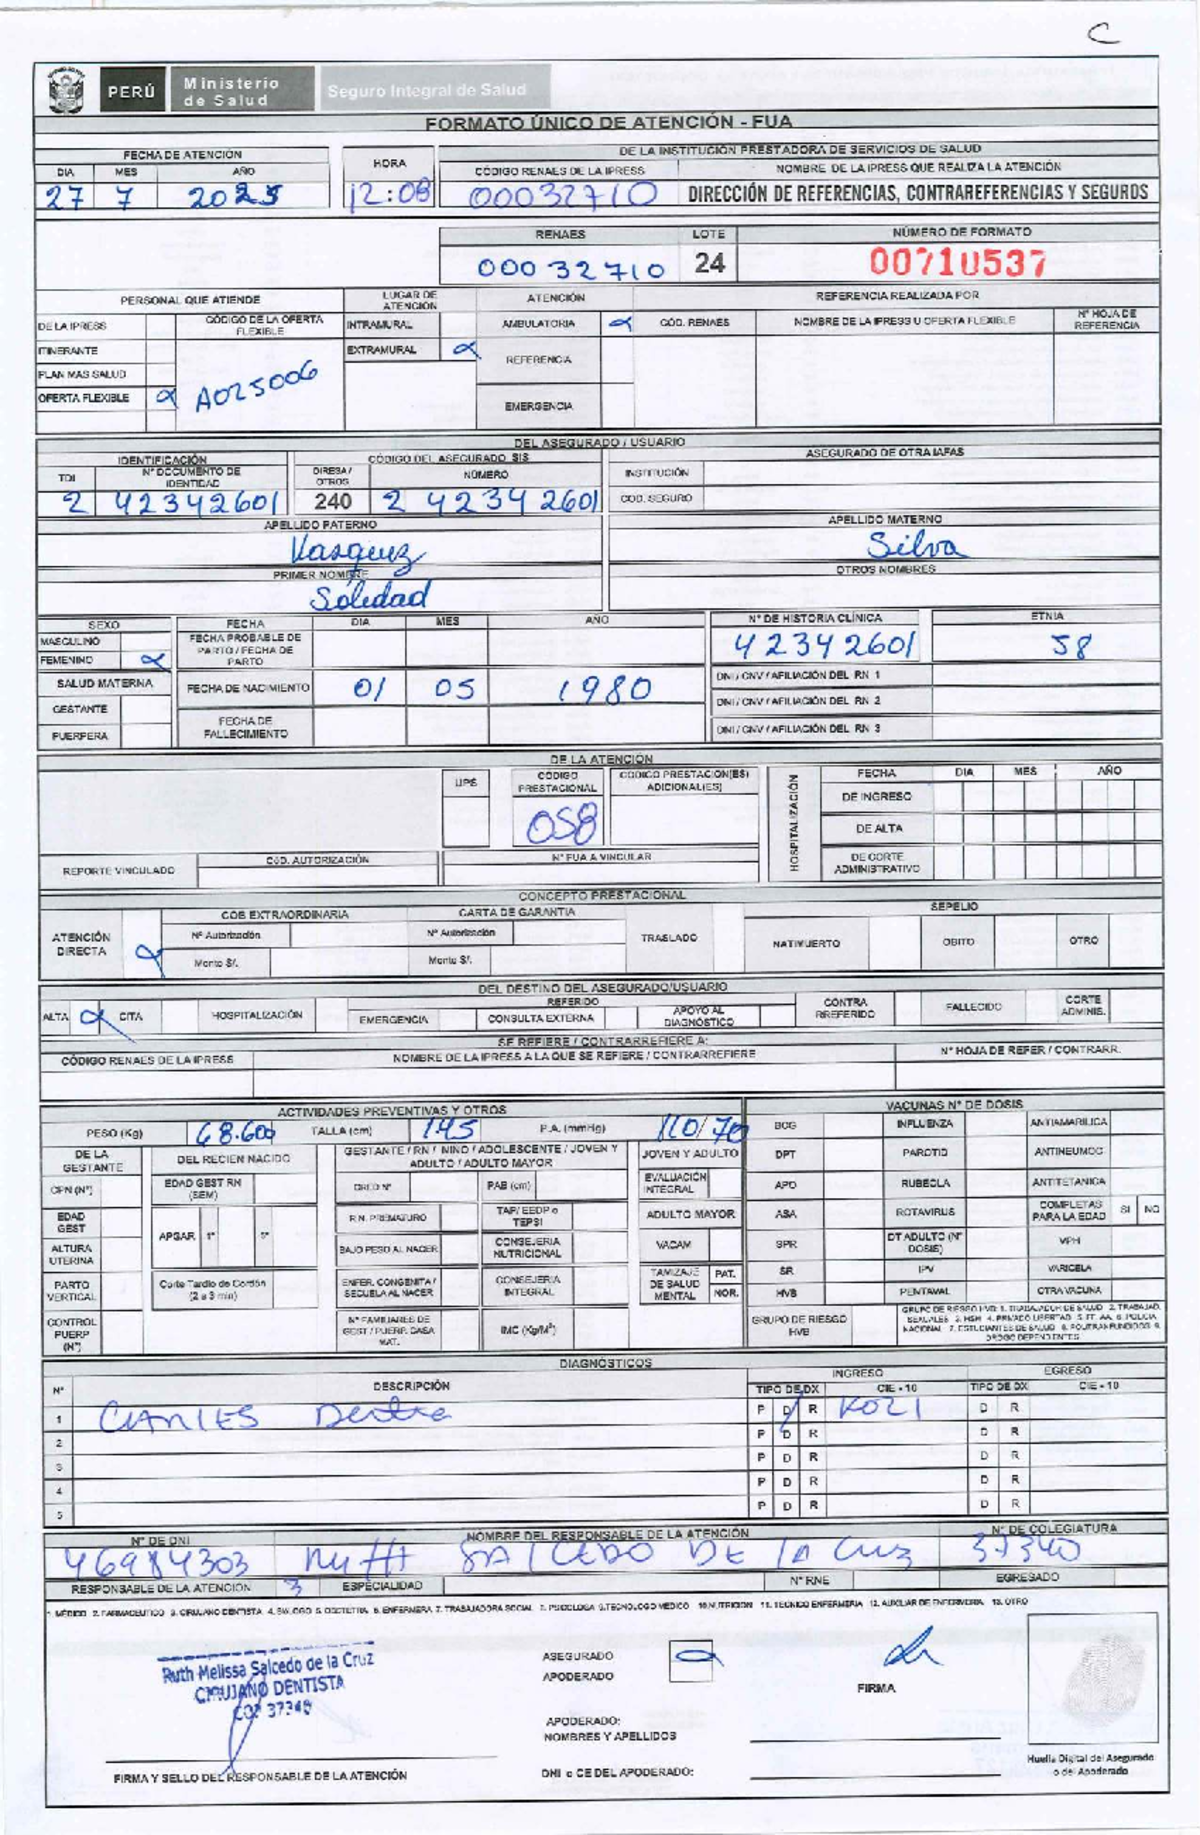 C
PERÚ Ministerio de Salud Seguro Integral de Salud
FORMATO ÚNICO DE ATENCIÓN - FUA
FECHA DE ATENCIÓN HORA DE LA INSTITUCIÓN PRESTADORA DE SERVICIOS DE SALUD
DIA MES AÑO CÓDIGO RENAES DE LA IPRESS NOMBRE DE LA IPRESS QUE REALIZA LA ATENCIÓN
27 7 2025 12:08 00032710 DIRECCIÓN DE REFERENCIAS, CONTRAREFERENCIAS Y SEGUROS
RENAES LOTE NÚMERO DE FORMATO
00032710 24 00710537
PERSONAL QUE ATIENDE LUGAR DE ATENCIÓN ATENCIÓN REFERENCIA REALIZADA POR
DE LA IPRESS CÓDIGO DE LA OFERTA FLEXIBLE INTRAMURAL AMBULATORIA COD. RENAES NOMBRE DE LA IPRESS U OFERTA FLEXIBLE N° HOJA DE REFERENCIA
ITINERANTE EXTRAMURAL REFERENCIA
PLAN MAS SALUD
OFERTA FLEXIBLE A025006 EMERGENCIA
DEL ASEGURADO / USUARIO
IDENTIFICACIÓN CÓDIGO DEL ASEGURADO SIS ASEGURADO DE OTRA IAFAS
TDI N° DOCUMENTO DE IDENTIDAD DIRESA / OTROS NÚMERO INSTITUCIÓN
2 42342601 240 2 42342601 COD. SEGURO
APELLIDO PATERNO APELLIDO MATERNO
Vasquez Silva
PRIMER NOMBRE OTROS NOMBRES
Soledad
SEXO FECHA DIA MES AÑO N° DE HISTORIA CLÍNICA ETNIA
MASCULINO FECHA PROBABLE DE PARTO / FECHA DE PARTO 42342601 58
FEMENINO
SALUD MATERNA FECHA DE NACIMIENTO 01 05 1980 DNI / CNV / AFILIACIÓN DEL RN 1
GESTANTE FECHA DE FALLECIMIENTO DNI / CNV / AFILIACIÓN DEL RN 2
PUERPERA DNI / CNV / AFILIACIÓN DEL RN 3
DE LA ATENCIÓN
UPS CÓDIGO PRESTACIONAL CÓDIGO PRESTACION(ES) ADICIONAL(ES) HOSPITALIZACIÓN FECHA DIA MES AÑO
058 DE INGRESO
DE ALTA
REPORTE VINCULADO COD. AUTORIZACIÓN N° FUA A VINCULAR DE CORTE ADMINISTRATIVO
CONCEPTO PRESTACIONAL
ATENCIÓN DIRECTA COB EXTRAORDINARIA CARTA DE GARANTIA TRASLADO SEPELIO
N° Autorización N° Autorización NATIMUERTO OBITO OTRO
Monto S/. Monto S/.
DEL DESTINO DEL ASEGURADO/USUARIO
ALTA CITA HOSPITALIZACIÓN REFERIDO CONTRA RREFERIDO FALLECIDO CORTE ADMINIS.
EMERGENCIA CONSULTA EXTERNA APOYO AL DIAGNÓSTICO
SE REFIERE / CONTRARREFIERE A:
CÓDIGO RENAES DE LA IPRESS NOMBRE DE LA IPRESS A LA QUE SE REFIERE / CONTRARREFIERE N° HOJA DE REFER / CONTRARR.
ACTIVIDADES PREVENTIVAS Y OTROS VACUNAS N° DE DOSIS
PESO (Kg) 68.600 TALLA (cm) 145 P.A. (mmHg) 110/70 BCG INFLUENZA ANTIAMARILICA
DE LA GESTANTE DEL RECIEN NACIDO GESTANTE / RN / NIÑO / ADOLESCENTE / JOVEN Y ADULTO / ADULTO MAYOR JOVEN Y ADULTO DPT PAROTID ANTINEUMOC
CPN (N°) EDAD GEST RN (SEM) CRED N° PAB (cm) EVALUACIÓN INTEGRAL APO RUBEOLA ANTITETANICA
EDAD GEST APGAR 1° 5° R.N. PREMATURO TAP/ EEDP o TEPSI ADULTO MAYOR ASA ROTAVIRUS COMPLETAS PARA LA EDAD SI NO
ALTURA UTERINA BAJO PESO AL NACER CONSEJERIA NUTRICIONAL VACAM SPR DT ADULTO (N° DOSIS) VPH
PARTO VERTICAL Corte Tardío de Cordón (2 a 3 min) ENFER. CONGENITA / SECUELA AL NACER CONSEJERÍA INTEGRAL TAMIZAJE DE SALUD MENTAL PAT. NOR. SR IPV VARICELA
HVB PENTAVAL OTRA VACUNA
CONTROL PUERP (N°) N° FAMILIARES DE GEST / PUERP. CASA MAT. IMC (Kg/M²) GRUPO DE RIESGO HVB GRUPO DE RIESGO HVB: 1. TRABAJADOR DE SALUD 2. TRABAJAD. SEXUALES 3. HSH 4. PRIVADO LIBERTAD 5. FF. AA. 6. POLICIA NACIONAL 7. ESTUDIANTES DE SALUD 8. POLITRANFUNDIDOS 9. DROGO DEPENDIENTES
DIAGNÓSTICOS
N° DESCRIPCIÓN INGRESO EGRESO
TIPO DE DX CIE - 10 TIPO DE DX CIE - 10
1 CARIES Dentina P D R K021 D R
2 P D R D R
3 P D R D R
4 P D R D R
5 P D R D R
N° DE DNI NOMBRE DEL RESPONSABLE DE LA ATENCIÓN N° DE COLEGIATURA
46984303 RUTH SALCEDO DE LA CRUZ 37340
RESPONSABLE DE LA ATENCIÓN 3 ESPECIALIDAD N° RNE EGRESADO
1. MÉDICO 2. FARMACEUTICO 3. CIRUJANO DENTISTA 4. BIOLOGO 5. OBSTETRA 6. ENFERMERA 7. TRABAJADORA SOCIAL 7. PSICOLOGA 9. TECNOLOGO MEDICO 10. NUTRICION 11. TECNICO ENFERMERIA 12. AUXILIAR DE ENFERMERIA 13. OTRO
Ruth Melissa Salcedo de la Cruz
CIRUJANO DENTISTA
COP 37340
ASEGURADO
APODERADO
FIRMA
APODERADO:
NOMBRES Y APELLIDOS
DNI o CE DEL APODERADO:
FIRMA Y SELLO DEL RESPONSABLE DE LA ATENCIÓN
Huella Digital del Asegurado o del Apoderado